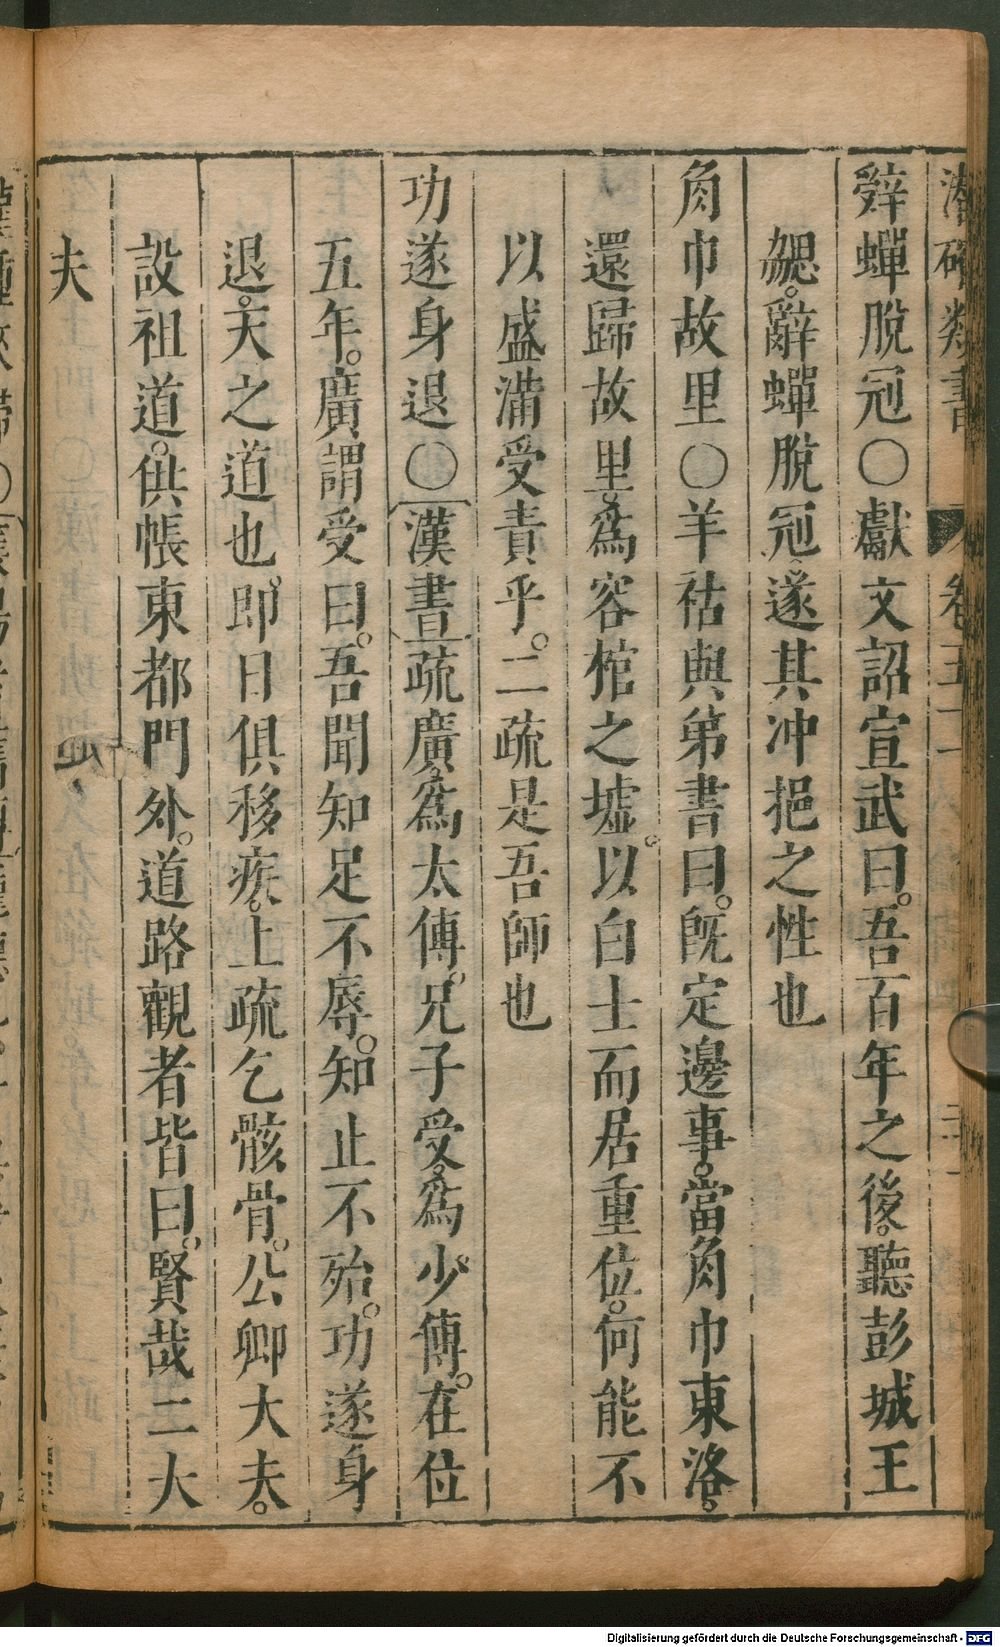 潛確類書 卷五十一 二十一
辤蟬脫冠○獻文詔宣武曰。吾百年之後。聽彭城王
勰。辭蟬脫冠。遂其冲挹之性也
角巾故里○羊祜與弟書曰。旣定邊事。當角巾東洛。
還歸故里。爲容棺之墟。以白士而居重位。何能不
以盛滿受責乎。二疏是吾師也
功遂身退○漢書疏廣。爲太傅。兄子受。爲少傅。在位
五年。廣謂受曰。吾聞知足不辱。知止不殆。功遂身
退。天之道也。卽日俱移疾。上疏乞骸骨。公卿大夫。
設祖道。供帳東都門外。道路觀者皆曰。賢哉二大
夫
Digitalisierung gefördert durch die Deutsche Forschungsgemeinschaft - DFG